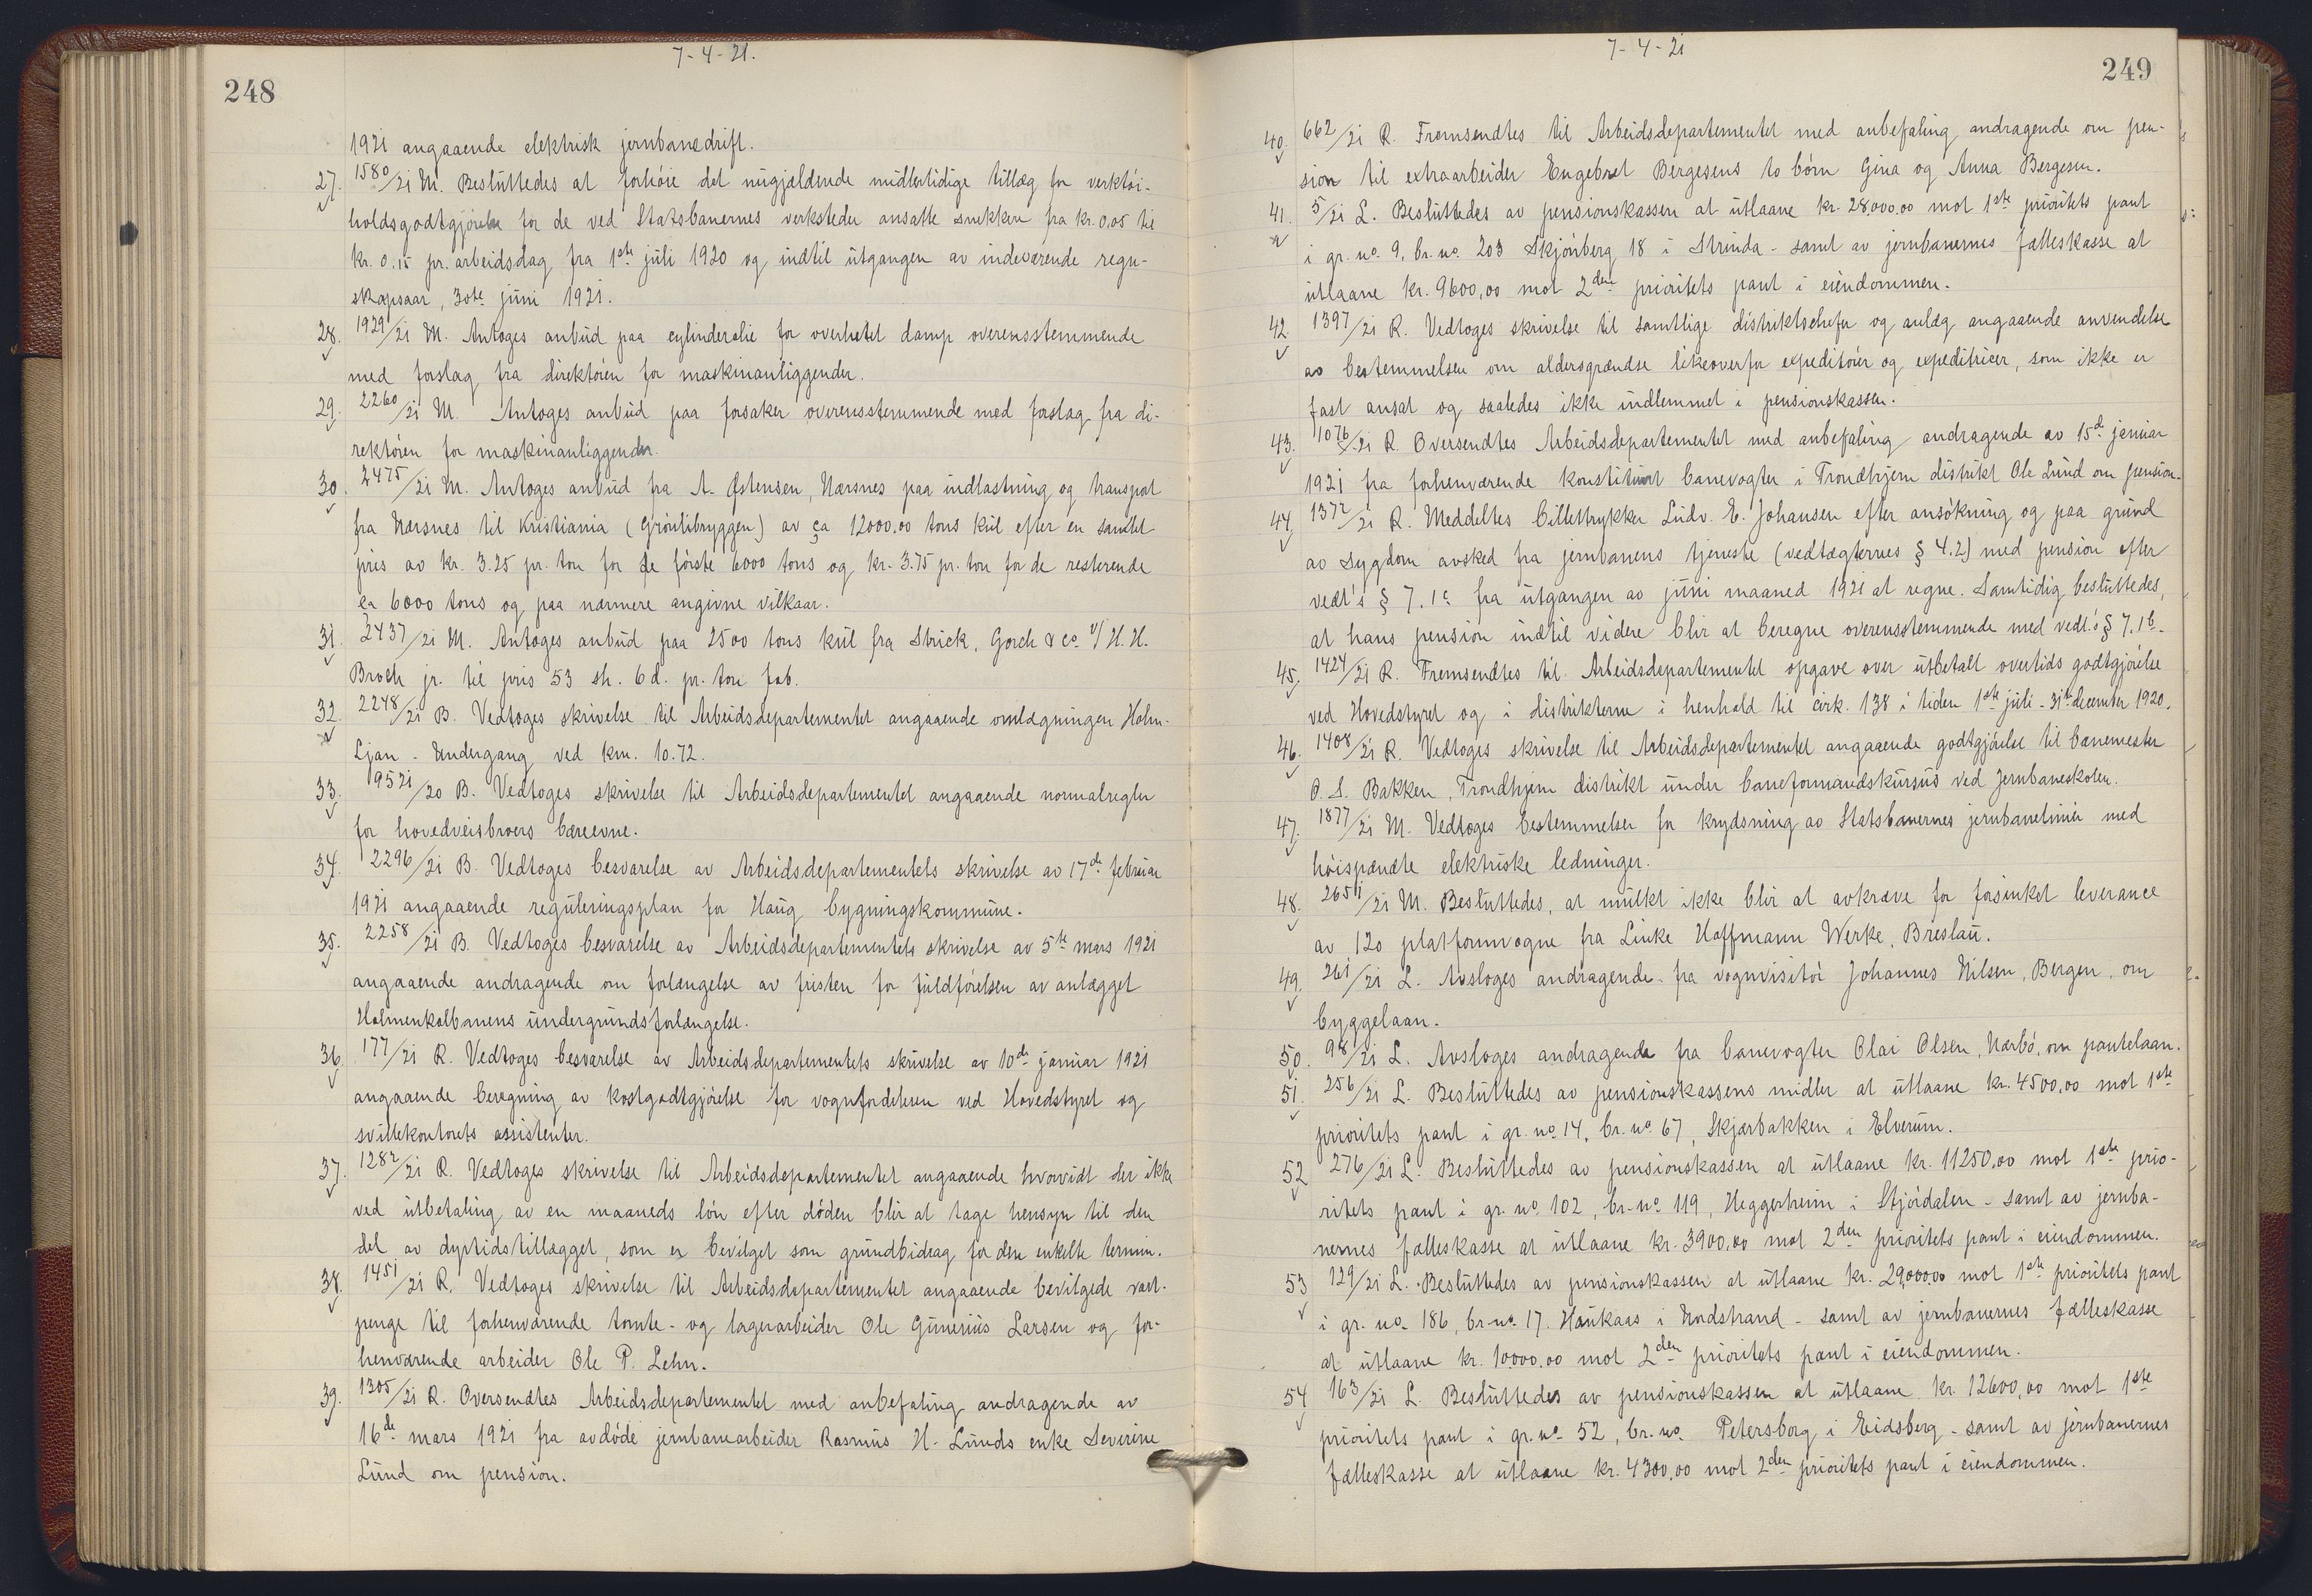 7-4-21.
248
1921 angaaende elektrisk jernbanedrift.
27. 1580/21 M. Besluttedes at forhöie det nugjældende midlertidige tillæg for verktöi-
holdsgodtgjörelse for de ved Statsbanernes verksteder ansatte snekkere fra kr. 0,05 til
kr. 0,15 pr. arbeidsdag fra 1ste juli 1920 og indtil utgangen av indeværende regn-
skapsaar, 30te juni 1921.
28. 1929/21 M. Antoges anbud paa cylinderolie for overhetet damp overensstemmende
med forslag fra direktören for maskinanliggender.
29. 2260/21 M. Antoges anbud paa forsaker overensstemmende med forslag fra di-
rektören for maskinanliggender.
30. 2475/21 M. Antoges anbud fra A. Østensen, Nærsnes paa indlastning og transport
fra Nærsnes til Kristiania (Grönlibryggen) av ca 12000,00 tons kul efter en samlet
pris av kr. 3.25 pr. ton for de förste 6000 tons og kr. 3.75 pr. ton for de resterende
ca 6000 tons og paa nærmere angivne vilkaar.
31. 2437/21 M. Antoges anbud paa 2500 tons kul fra Strick, Gorch & Co. v/ H. H.
Broch jr. til pris 53 sh. 6 d. pr. ton fob.
32. 2248/21 B. Vedtoges skrivelse til Arbeidsdepartementet angaaende omlægningen Holm-
Ljan - Undergang ved km. 10.72.
33. 9521/20 B. Vedtoges skrivelse til Arbeidsdepartementet angaaende normalregler
for hovedveisbroers bæreevne.
34. 2296/21 B. Vedtoges besvarelse av Arbeidsdepartementets skrivelse av 17de februar
1921 angaaende reguleringsplan for Haug bygningskommune.
35. 2258/21 B. Vedtoges besvarelse av Arbeidsdepartementets skrivelse av 5te mars 1921
angaaende andragende om forlængelse av fristen for fuldförelsen av anlægget
Holmenkolbanens undergrundsforlængelse.
36. 177/21 R. Vedtoges besvarelse av Arbeidsdepartementets skrivelse av 10de januar 1921
angaaende beregning av kostgodtgjörelse for vognfordeleren ved Hovedstyret og
svillekontorets assistenter.
37. 1282/21 R. Vedtoges skrivelse til Arbeidsdepartementet angaaende hvorvidt der ikke
ved utbetaling av en maaneds lön efter döden blir at tage hensyn til den
del av dyrtidstillægget, som er bevilget som grundbidrag for den enkelte termin.
38. 1451/21 R. Vedtoges skrivelse til Arbeidsdepartementet angaaende bevilgede vart-
penge til forhenværende tomte- og lagerarbeider Ole Gunerius Larsen og for-
henværende arbeider Ole P. Lehn.
39. 1305/21 R. Oversendtes Arbeidsdepartementet med anbefaling andragende av
16de mars 1921 fra avdöde jernbanearbeider Rasmus H. Lunds enke Severine
Lund om pension.
7-4-21
249
40. 662/21 R. Fremsendtes til Arbeidsdepartementet med anbefaling andragende om pen-
sion til extraarbeider Engebret Bergesens to börn Gina og Anna Bergesen.
41. 5/21 L. Besluttedes av pensionskassen at utlaane kr. 28,000.00 mot 1ste prioritets pant
i gr. no. 9, br. no. 203 Skjönberg 18 i Strinda - samt av jernbanernes fælleskasse at
utlaane kr. 9600,00 mot 2den prioritets pant i eiendommen.
42. 1397/21 R. Vedtoges skrivelse til samtlige distriktschefer og anlæg angaaende anvendelse
av bestemmelsen om aldersgrændse likeoverfor expeditörer og expeditricer, som ikke er
fast ansat og saaledes ikke indlemmet i pensionskassen.
43. 1076/21 R Oversendtes Arbeidsdepartementet med anbefaling andragende av 15de januar
1921 fra forhenværende konstituert banevogter i Trondhjem distrikt Ole Lund om pension.
44. 1372/21 R. Meddeltes billettrykker Ludv. E. Johansen efter ansökning og paa grund
av sygdom avsked fra jernbanens tjeneste (vedtægternes § 4.2) med pension efter
vedt's § 7.1c fra utgangen av juni maaned 1921 at regne. Samtidig besluttedes,
at hans pension indtil videre blir at beregne overensstemmende med vedt.s § 7.1b.
45. 1424/21 R. Fremsendtes til Arbeidsdepartementet opgave over utbetalt overtidsgodtgjörelse
ved Hovedstyret og i distrikterne i henhold til cirk. 138 i tiden 1ste juli - 31te december 1920.
46. 1408/21 R. Vedtoges skrivelse til Arbeidsdepartementet angaaende godtgjörelse til banemester
O. S. Bakken, Trondhjem distrikt under baneformandskursus ved Jernbaneskolen.
47. 1877/21 M. Vedtoges bestemmelser for krydsning av Statsbanernes jernbanelinier med
höispændte elektriske ledninger.
48. 2651/21 M. Besluttedes, at mulkt ikke blir at avkræve for forsinket leverance
av 120 platformvogne fra Linke Hoffmann Werke, Breslau.
49. 261/21 L. Avsloges andragende fra vognvisitör Johannes Nilsen, Bergen, om
byggelaan.
50. 98/21 L. Avsloges andragende fra banevogter Olai Olsen, Nærbö, om pantelaan.
51. 256/21 L. Besluttedes av pensionskassens midler at utlaane kr. 4500,00 mot 1ste
prioritets pant i gr. no. 14, br. no. 67, Skjærbakken i Elverum.
52 276/21 L. Besluttedes av pensionskassen at utlaane kr. 11250,00 mot 1ste prio-
ritets pant i gr. no. 102, br. no. 119, Heggerheim i Stjördalen - samt av jernba-
nernes fælleskasse at utlaane kr. 3900,00 mot 2den prioritets pant i eiendommen.
53 129/21 L. Besluttedes av pensionskassen at utlaane kr. 29,000,00 mot 1ste prioritets pant
i gr. no. 186, br. no. 17. Haukaas i Nordstrand - samt av jernbanernes fælleskasse
at utlaane kr. 10000.00 mot 2den prioritets pant i eiendommen.
54 163/21 L. Besluttedes av pensionskassen at utlaane kr. 12600,00 mot 1ste
prioritets pant i gr. no. 52, br. no. Petersborg i Eidsberg - samt av jernbanernes
fælleskasse at utlaane kr. 4300,00 mot 2den prioritets pant i eiendommen.